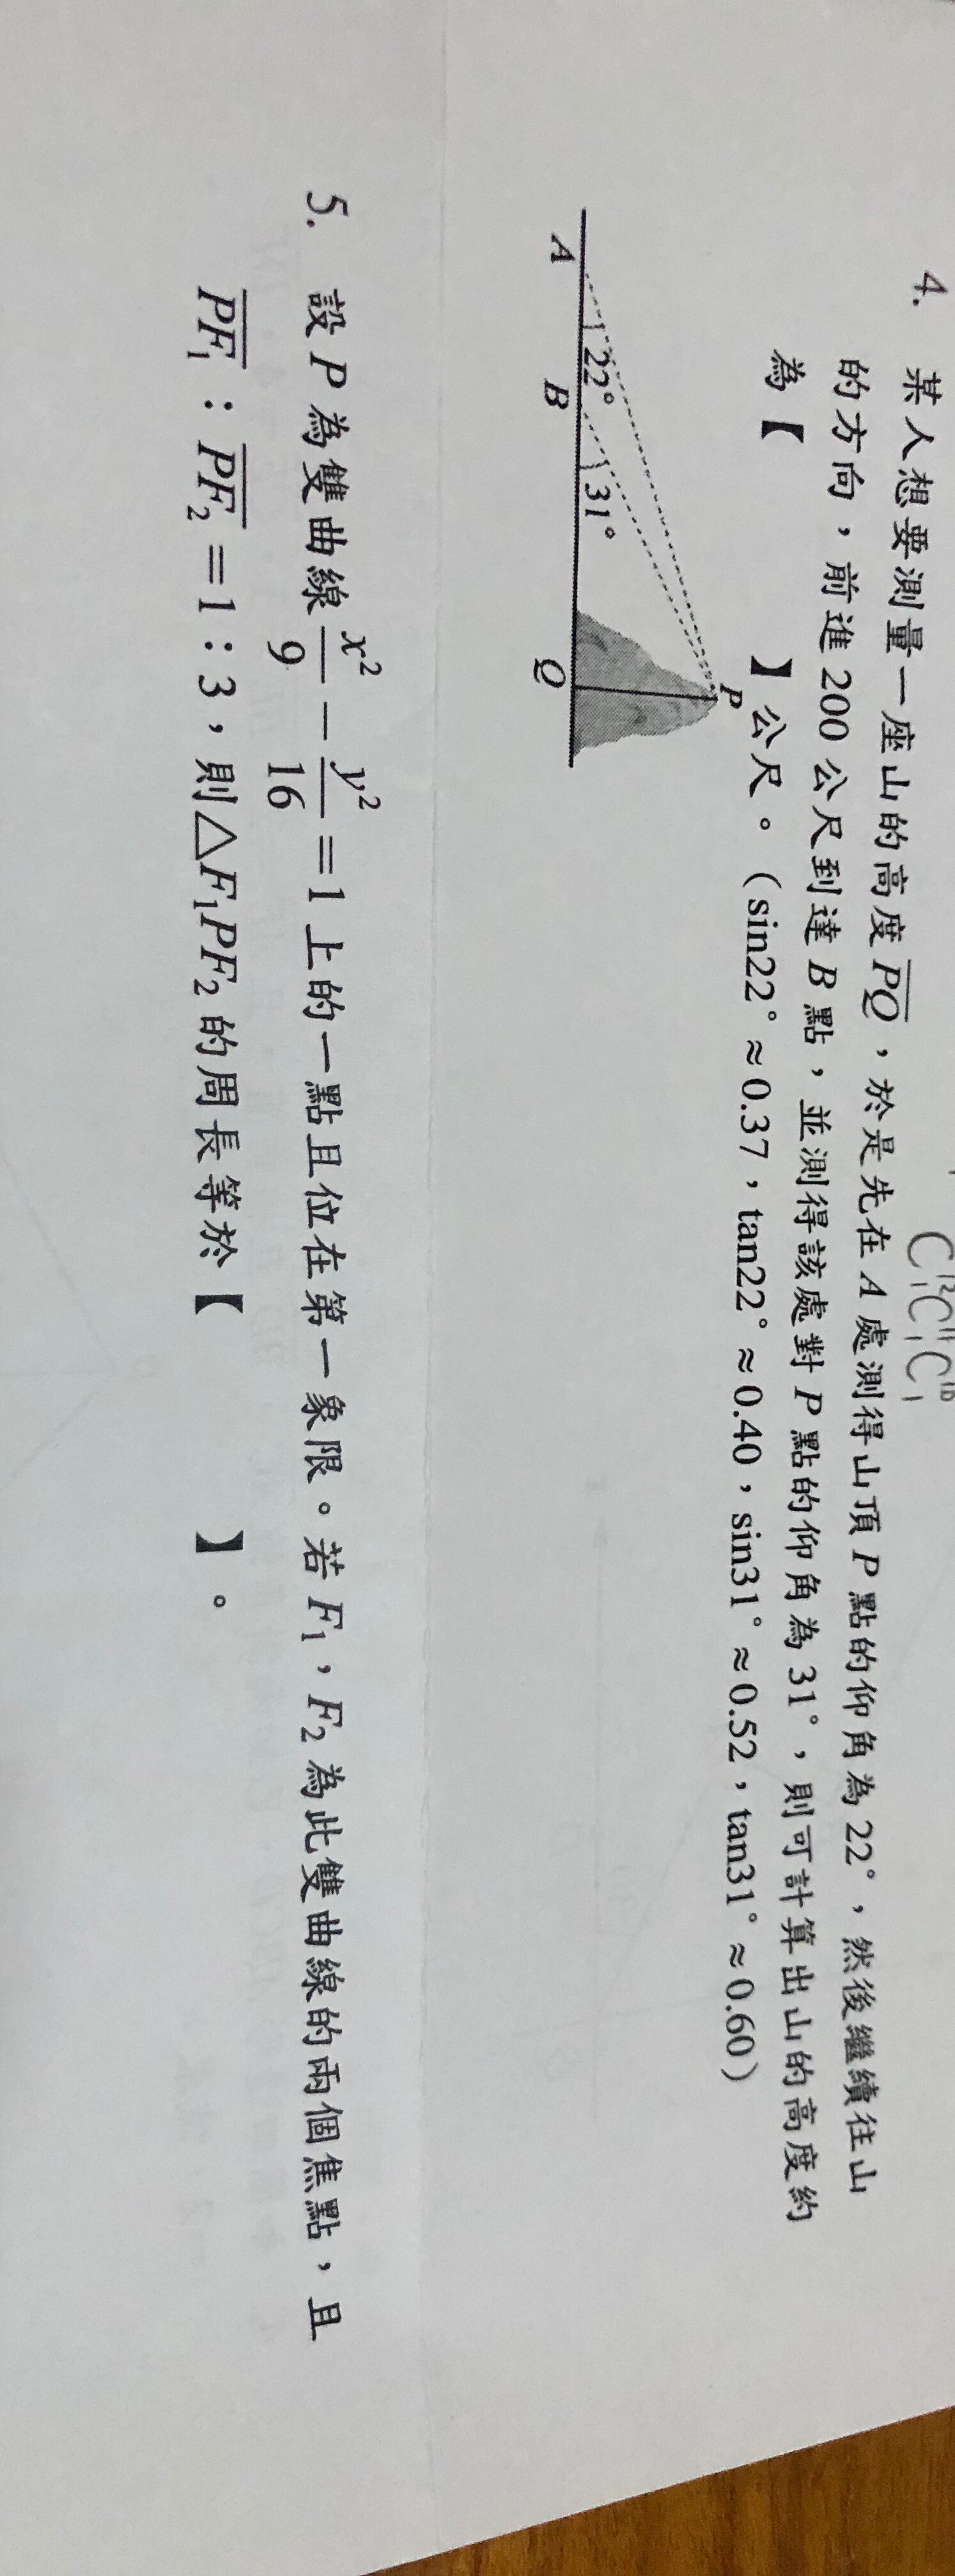 C¹²₁C¹¹₁C¹⁰₁
4. 某人想要測量一座山的高度PQ，於是先在A處測得山頂P點的仰角為22°，然後繼續往山
的方向，前進200公尺到達B點，並測得該處對P點的仰角為31°，則可計算出山的高度約
為【 】公尺。（sin22°≈0.37，tan22°≈0.40，sin31°≈0.52，tan31°≈0.60）
P
22°
31°
A
B
Q
5. 設P為雙曲線x²/9－y²/16＝1上的一點且位在第一象限。若F₁，F₂為此雙曲線的兩個焦點，且
PF₁：PF₂＝1：3，則△F₁PF₂的周長等於【 】。